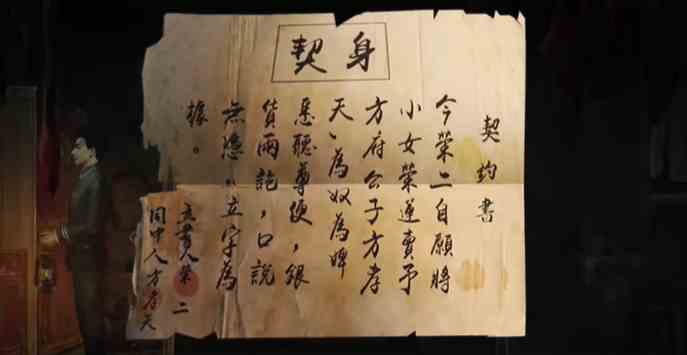 身契
契約書
今榮二自願將
小女榮蓮賣予
方府公子方孝
天、為奴為婢
悉聽尊便，銀
貨兩訖，口說
無憑，立字為
據。
立書人榮二
同中人方孝天